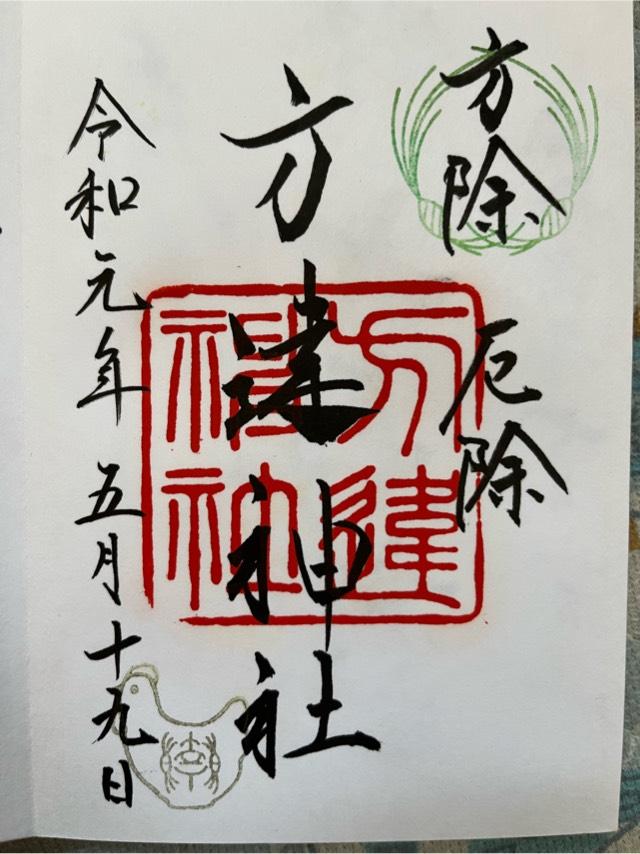 方除 厄除
方違神社
方違神社
令和元年 五月十九日